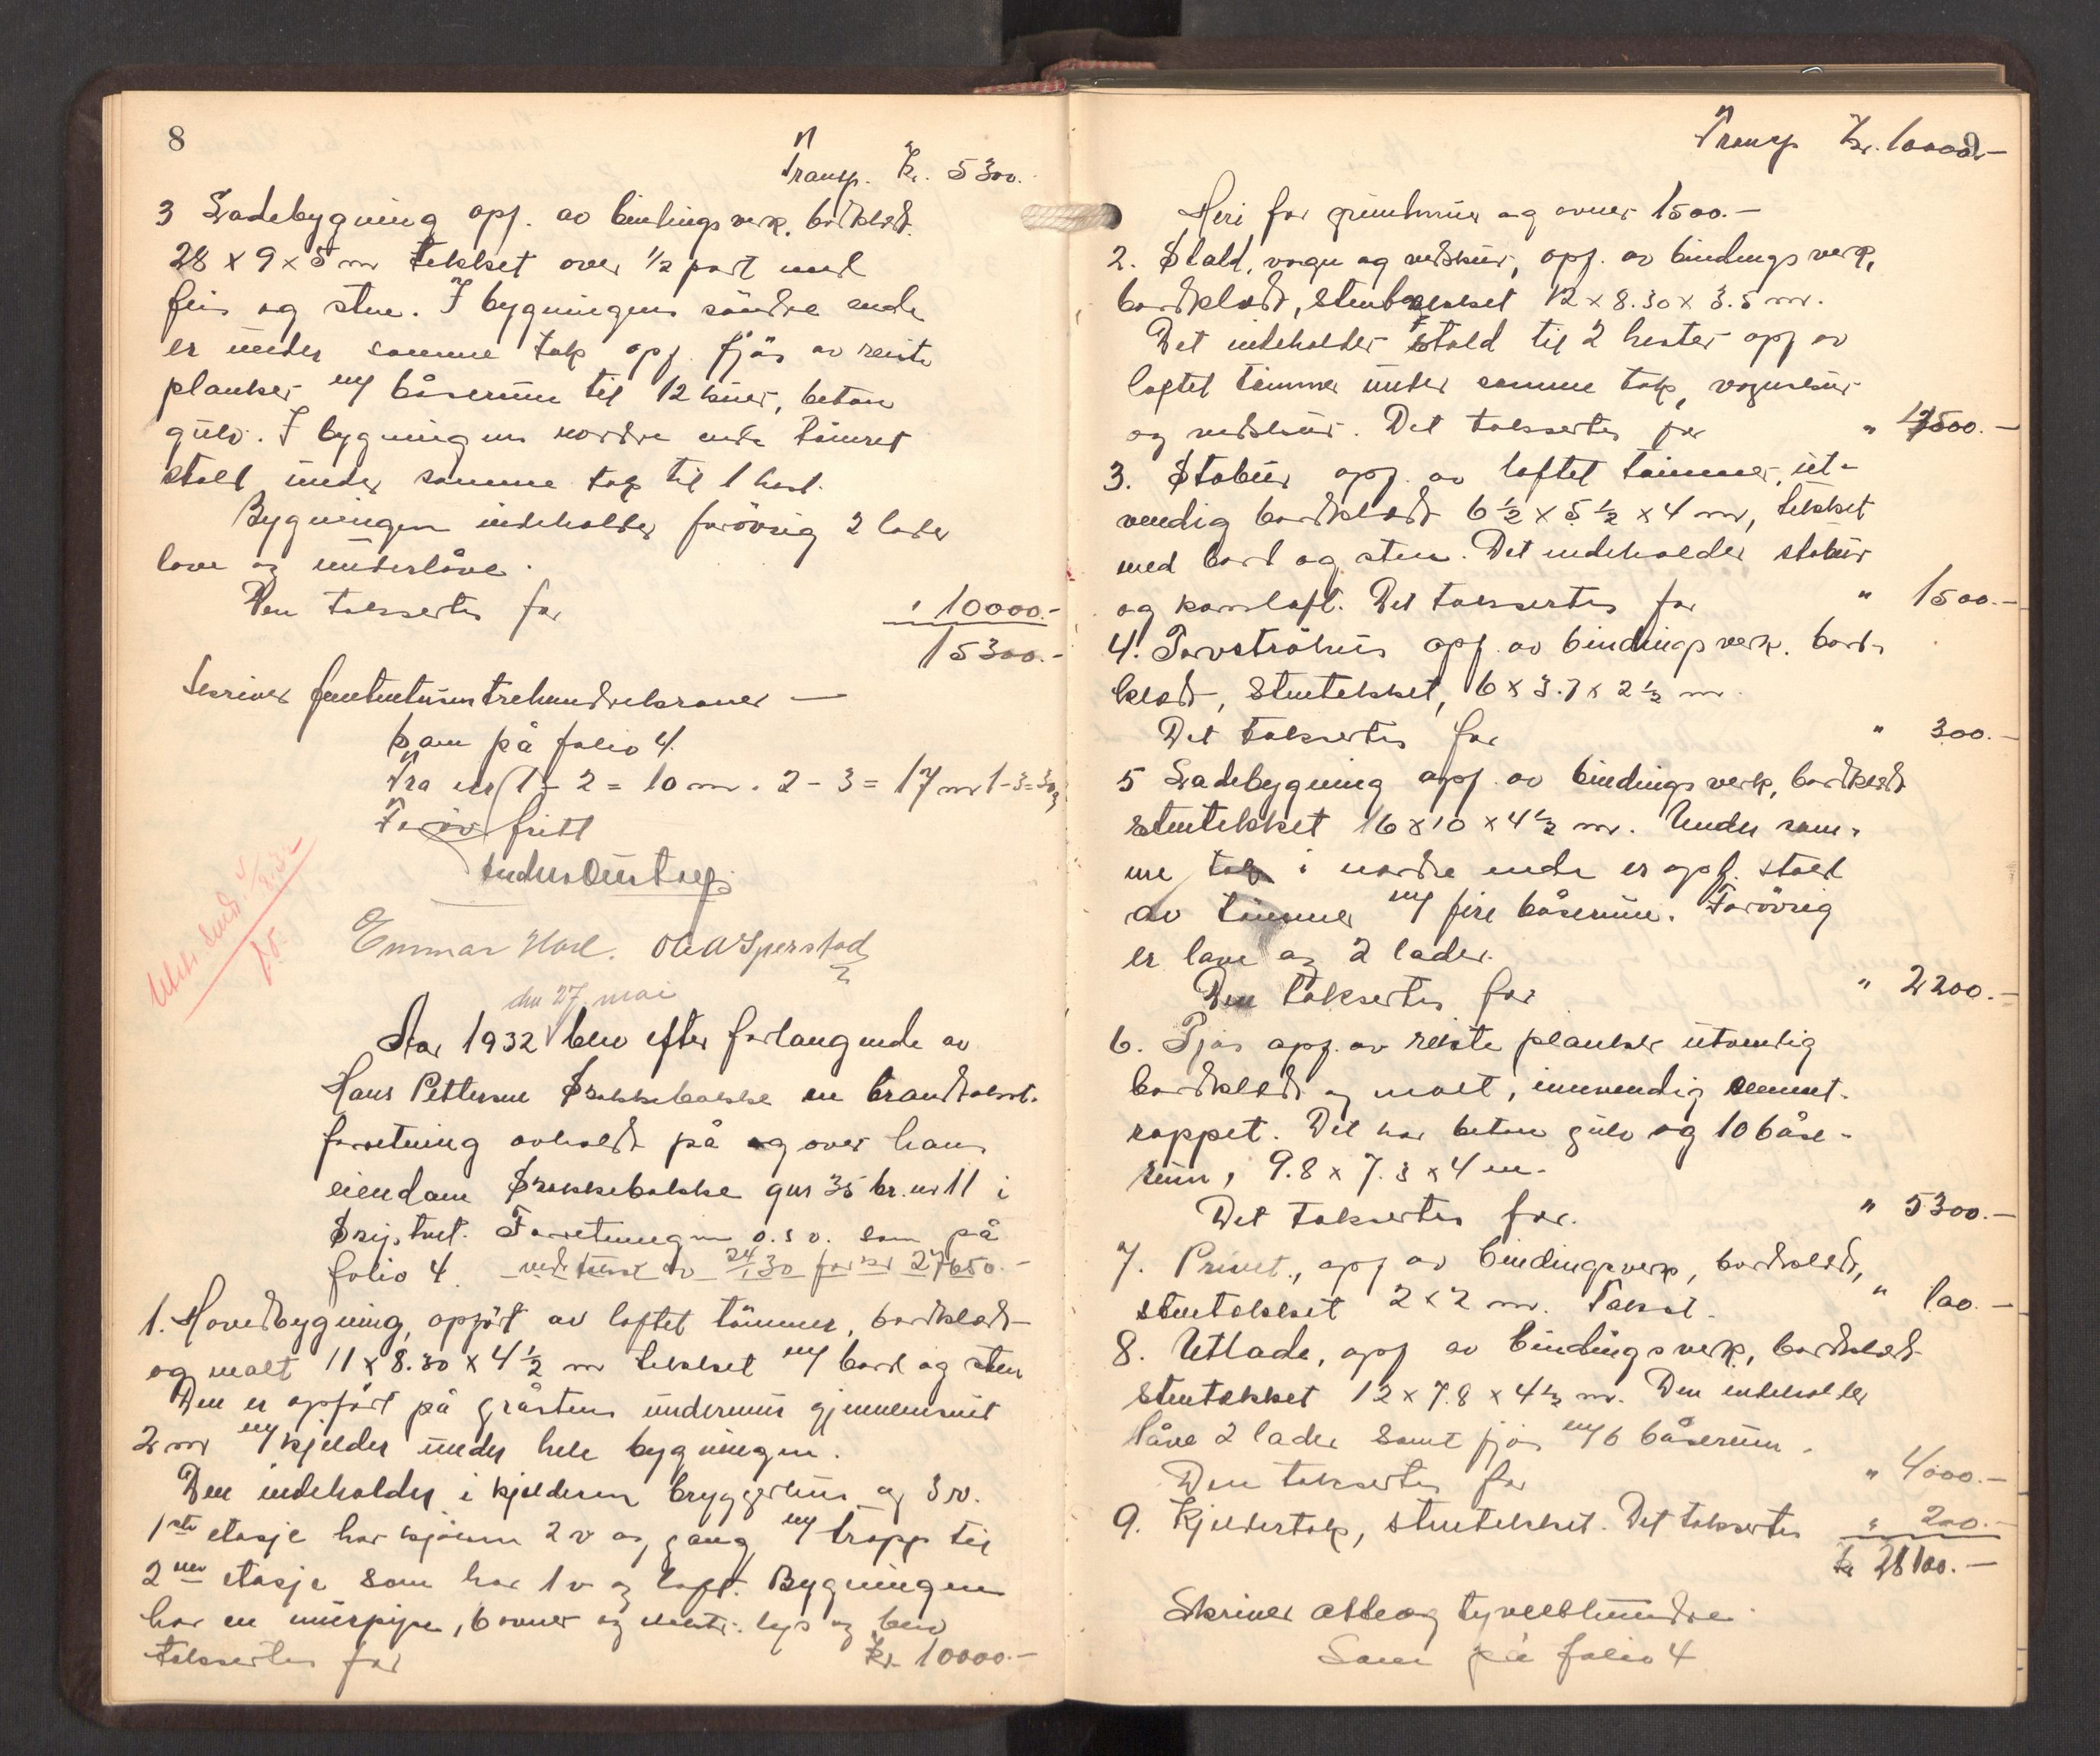 8
Transp. Kr. 5300.
3 Ladebygning opf. av bindingsverk, bordklædt
28 x 9 x 5 m tekket over 1/2 part med
flis og sten. I bygningens söndre ende
er under samme tak opf. fjös av reiste
planker m/ båserum til 12 kuer, beton
gulv. I bygningens nordre ende tömret
stall under samme tak til 1 hest.
Bygningen indeholder forövrig 2 lader
lave og underlåve.
Den taksertes for
" 10000.-
15300.-
Skriver femtentusentrehundrekroner —
som på folio 4.
Fra nr 1 - 2 = 10 m. 2 - 3 = 17 m 1-3=30
Foröv fritt
Einar Hoel. Ole A Sperstad
den 27 mai
Aar 1932 blev efter forlangende av
Hans Petterson Brakkebakke en brandtakst-
forretning avholdt på og over hans
eiendom Brakkebakke gnr 35 br.nr 11 i
Forretningen o.s.v. som på
folio 4. sidste takst av 24/1 30 for kr 27650.-
1. Hovedbygning, opfört av loftet tömmer, bordklædt
og malt 11 x 8.30 x 4 1/2 m tekket m/ bord og sten
Den er opfört på gråstens undermur gjennemsnit
2 m m/ kjelder under hele bygningen.
Den indeholder i kjelderen bryggerhus og 3 v.
1ste etasje har kjöken 2 v og gang m/ trapp til
2nen etasje som har 1 v og loft. Bygningen
har en murpipe, 6 ovner og elektr. lys og blev
taksertes for
Kr. 10000.-
9
Transp Kr. 10000.-
Heri for grundmur og ovner 1500.-
2. Stald, vogn og vedskur, opf. av bindingsverk,
bordklædt, stentekket 12 x 8.30 x 3.5 m.
Det indeholder stald til 2 hester opf av
loftet tömmer under samme tak, vognskur
og vedskur. Det taksertes for
" 4500.-
3. Stabur opf. av loftet tömmer, ut-
vendig bordklædt 6 1/2 x 5 1/2 x 4 m, tekket
med bord og sten. Det indeholder stabur
og kornloft. Det taksertes for " 1500.-
4. Torvströhus opf. av bindingsverk. bord-
klædt, stentekket, 6 x 3.7 x 2 1/2 m.
Det taksertes for " 300.-
5 Ladebygning opf. av bindingsverk, bordklædt
stentekket 16 x 10 x 4 1/2 m. Under sam-
me tak i nordre ende er opf. stald
av tömmer m/ fire båserum. Forövrig
er lave og 2 lader.
Den taksertes for " 2200.-
6. Fjös opf. av reiste planker utvendig
bordklædt og malt, innvendig cement-
rappet. Det har beton gulv og 10 båse-
rum, 9.8 x 7.3 x 4 m.
Det taksertes for. " 5300.-
7. Privet, opf av bindingsverk, bordklædt,
stentekket 2 x 2 m. Takst. " 100.-
8. Utlade, opf av bindingsverk, bordklædt
stentekket 12 x 7.8 x 4 1/2 m. Den indeholder
låve 2 lader samt fjös m/ 6 båserum.
Den taksertes for " 4000.-
9. Kjeldertak, stentekket. Det taksertes " 200.-
Kr 28100.-
Skriver
Som på folio 4